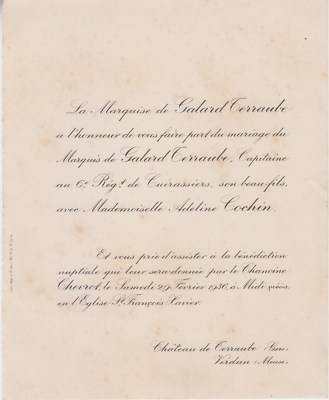 La Marquise de Galard Terraube
a l'honneur de vous faire part du mariage du
Marquis de Galard Terraube, Capitaine
au 6e Régt de Cuirassiers, son beau-fils,
avec Mademoiselle Adeline Cochin.
Et vous prie d'assister à la bénédiction
nuptiale qui leur sera donnée par le Chanoine
Chevrot, le Samedi 29 Février 1936, à Midi précis,
en l'Eglise St François Xavier.
Château de Terraube (Gers)
Verdun (Meuse)